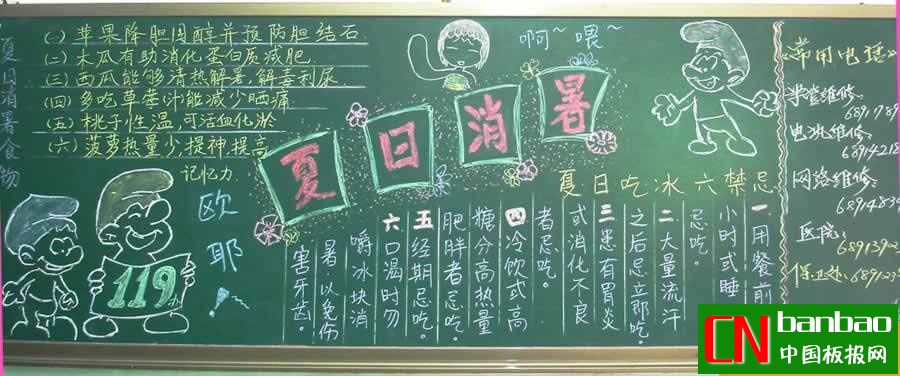 夏日消暑食物
(一) 苹果降胆固醇并预防胆结石
(二) 木瓜有助消化蛋白质减肥
(三) 西瓜能够清热解暑,解毒利尿
(四) 多吃草莓汁能减少晒痛
(五) 桃子性温,可活血化淤
(六) 菠萝热量少,提神提高
记忆力
欧耶!
119
啊~喂~
夏日消暑
夏日吃冰六禁忌
一用餐前
小时或睡
忌吃。
二大量流汗
之后忌立即吃。
三患有胃炎
或消化不良
者忌吃。
四冷饮或高
糖分高热量
肥胖者忌吃。
五经期忌吃。
六口渴时勿
嚼冰块消
暑以免伤
害牙齿。
《常用电话》
电池维修:
68914218
网络维修:
医院:
保卫处:
CN banbao
中国板报网